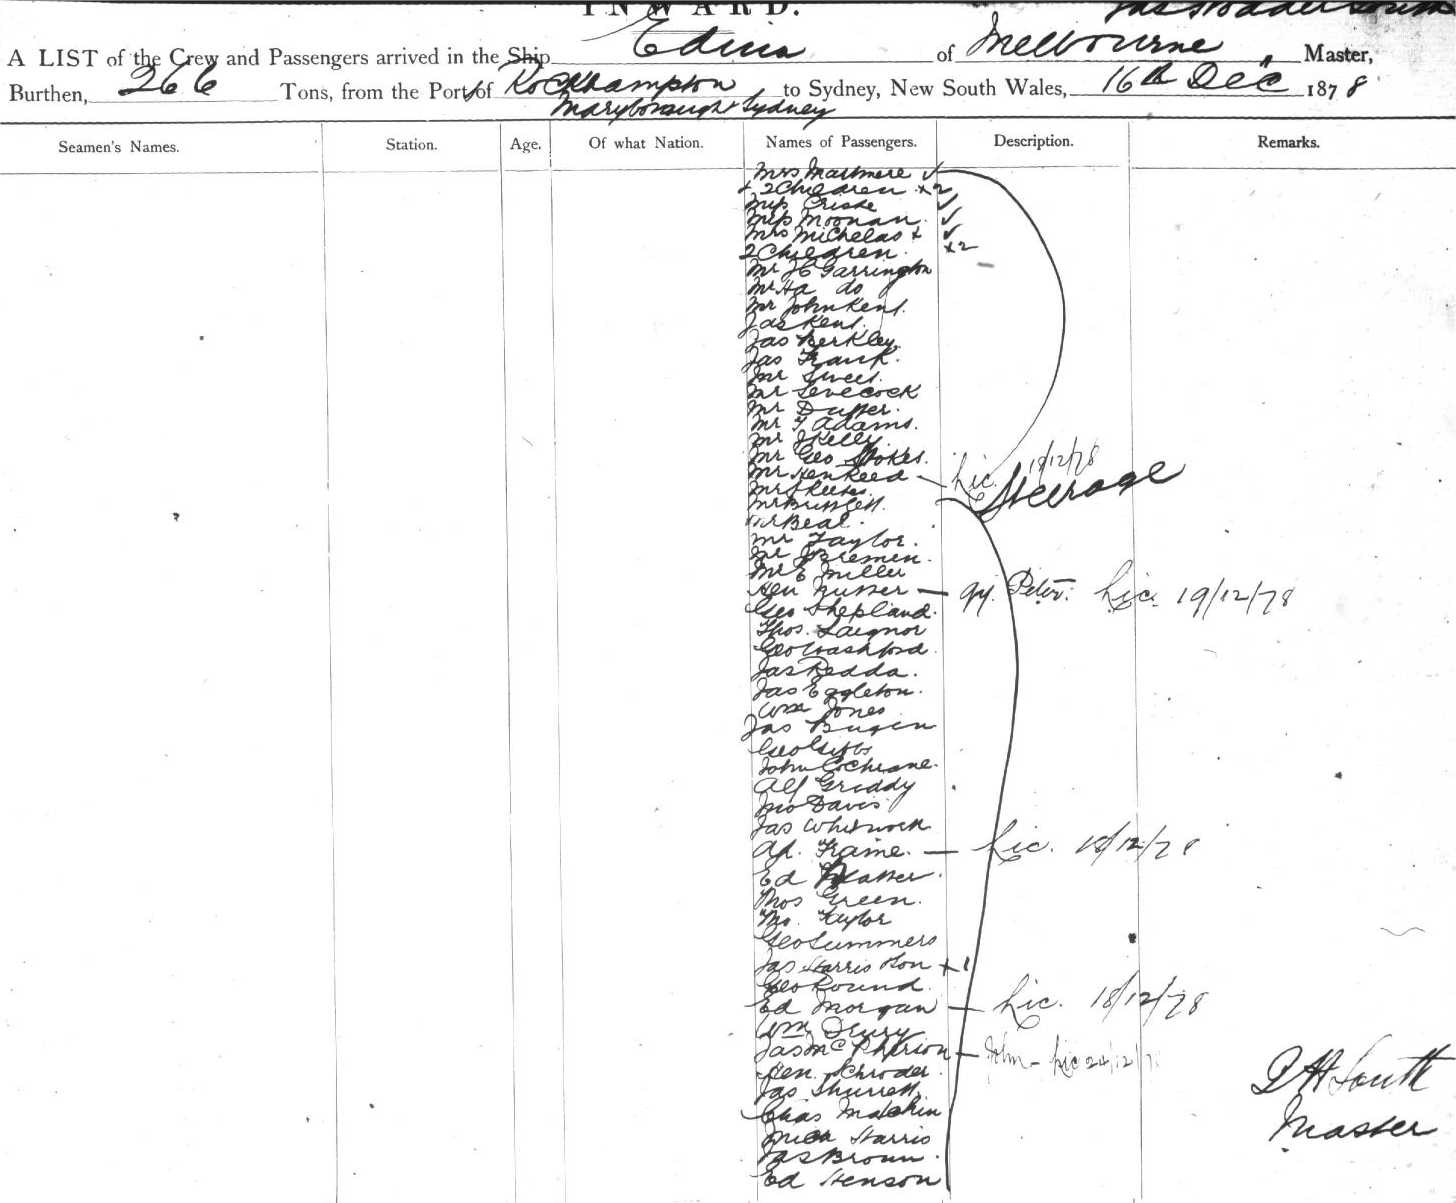 INWARD.
A LIST of the Crew and Passengers arrived in the Ship Edina of Melbourne Master,
Burthen, 266 Tons, from the Port of Rockhampton to Sydney, New South Wales, 16th Dec 1878
Maryborough & Sydney
Seamen's Names. Station. Age. Of what Nation. Names of Passengers. Description. Remarks.
Mrs
+ 2 Children x2
Miss
Miss Moonan
Mrs Michelas +
2 Children x2
Mr Garrington
Mr do
Mr John Kent
Jas Kent
Jas Berkley
Jas Frank.
Mr Sweet.
Mr Levecock
Mr Duffer.
Mr T Adams.
Mr J Kelly
Mr Geo Stokes.
Mr Hen Reed — Lic. 18/12/78
Steerage
Mr Reeves
Mr
Mr Beal.
Mr Taylor.
Mr J Bremen.
Mr E Miller
Hen — qy. Peter. Lic. 19/12/78
Geo Shepland.
Thos.
Geo Washford
Jas Redda.
Jas Eggleton.
Wm Jones
Jas Bugen
Geo Gibbs
John Cochrane.
Alf Griddy
Jno Davis
Jas Whitwork
Af. Frame. — Lic. 18/12/78
Ed
Thos Green.
Taylor
Geo Summers
Jas Harris Son +1
Geo Round.
Ed Morgan — Lic. 18/12/78
Wm Drury
Jas McPherion — John — Lic 24/12/7
Hen. Schroder.
Jas
Chas Machin
Harris
Jas Brown.
Ed Henson
South
Master